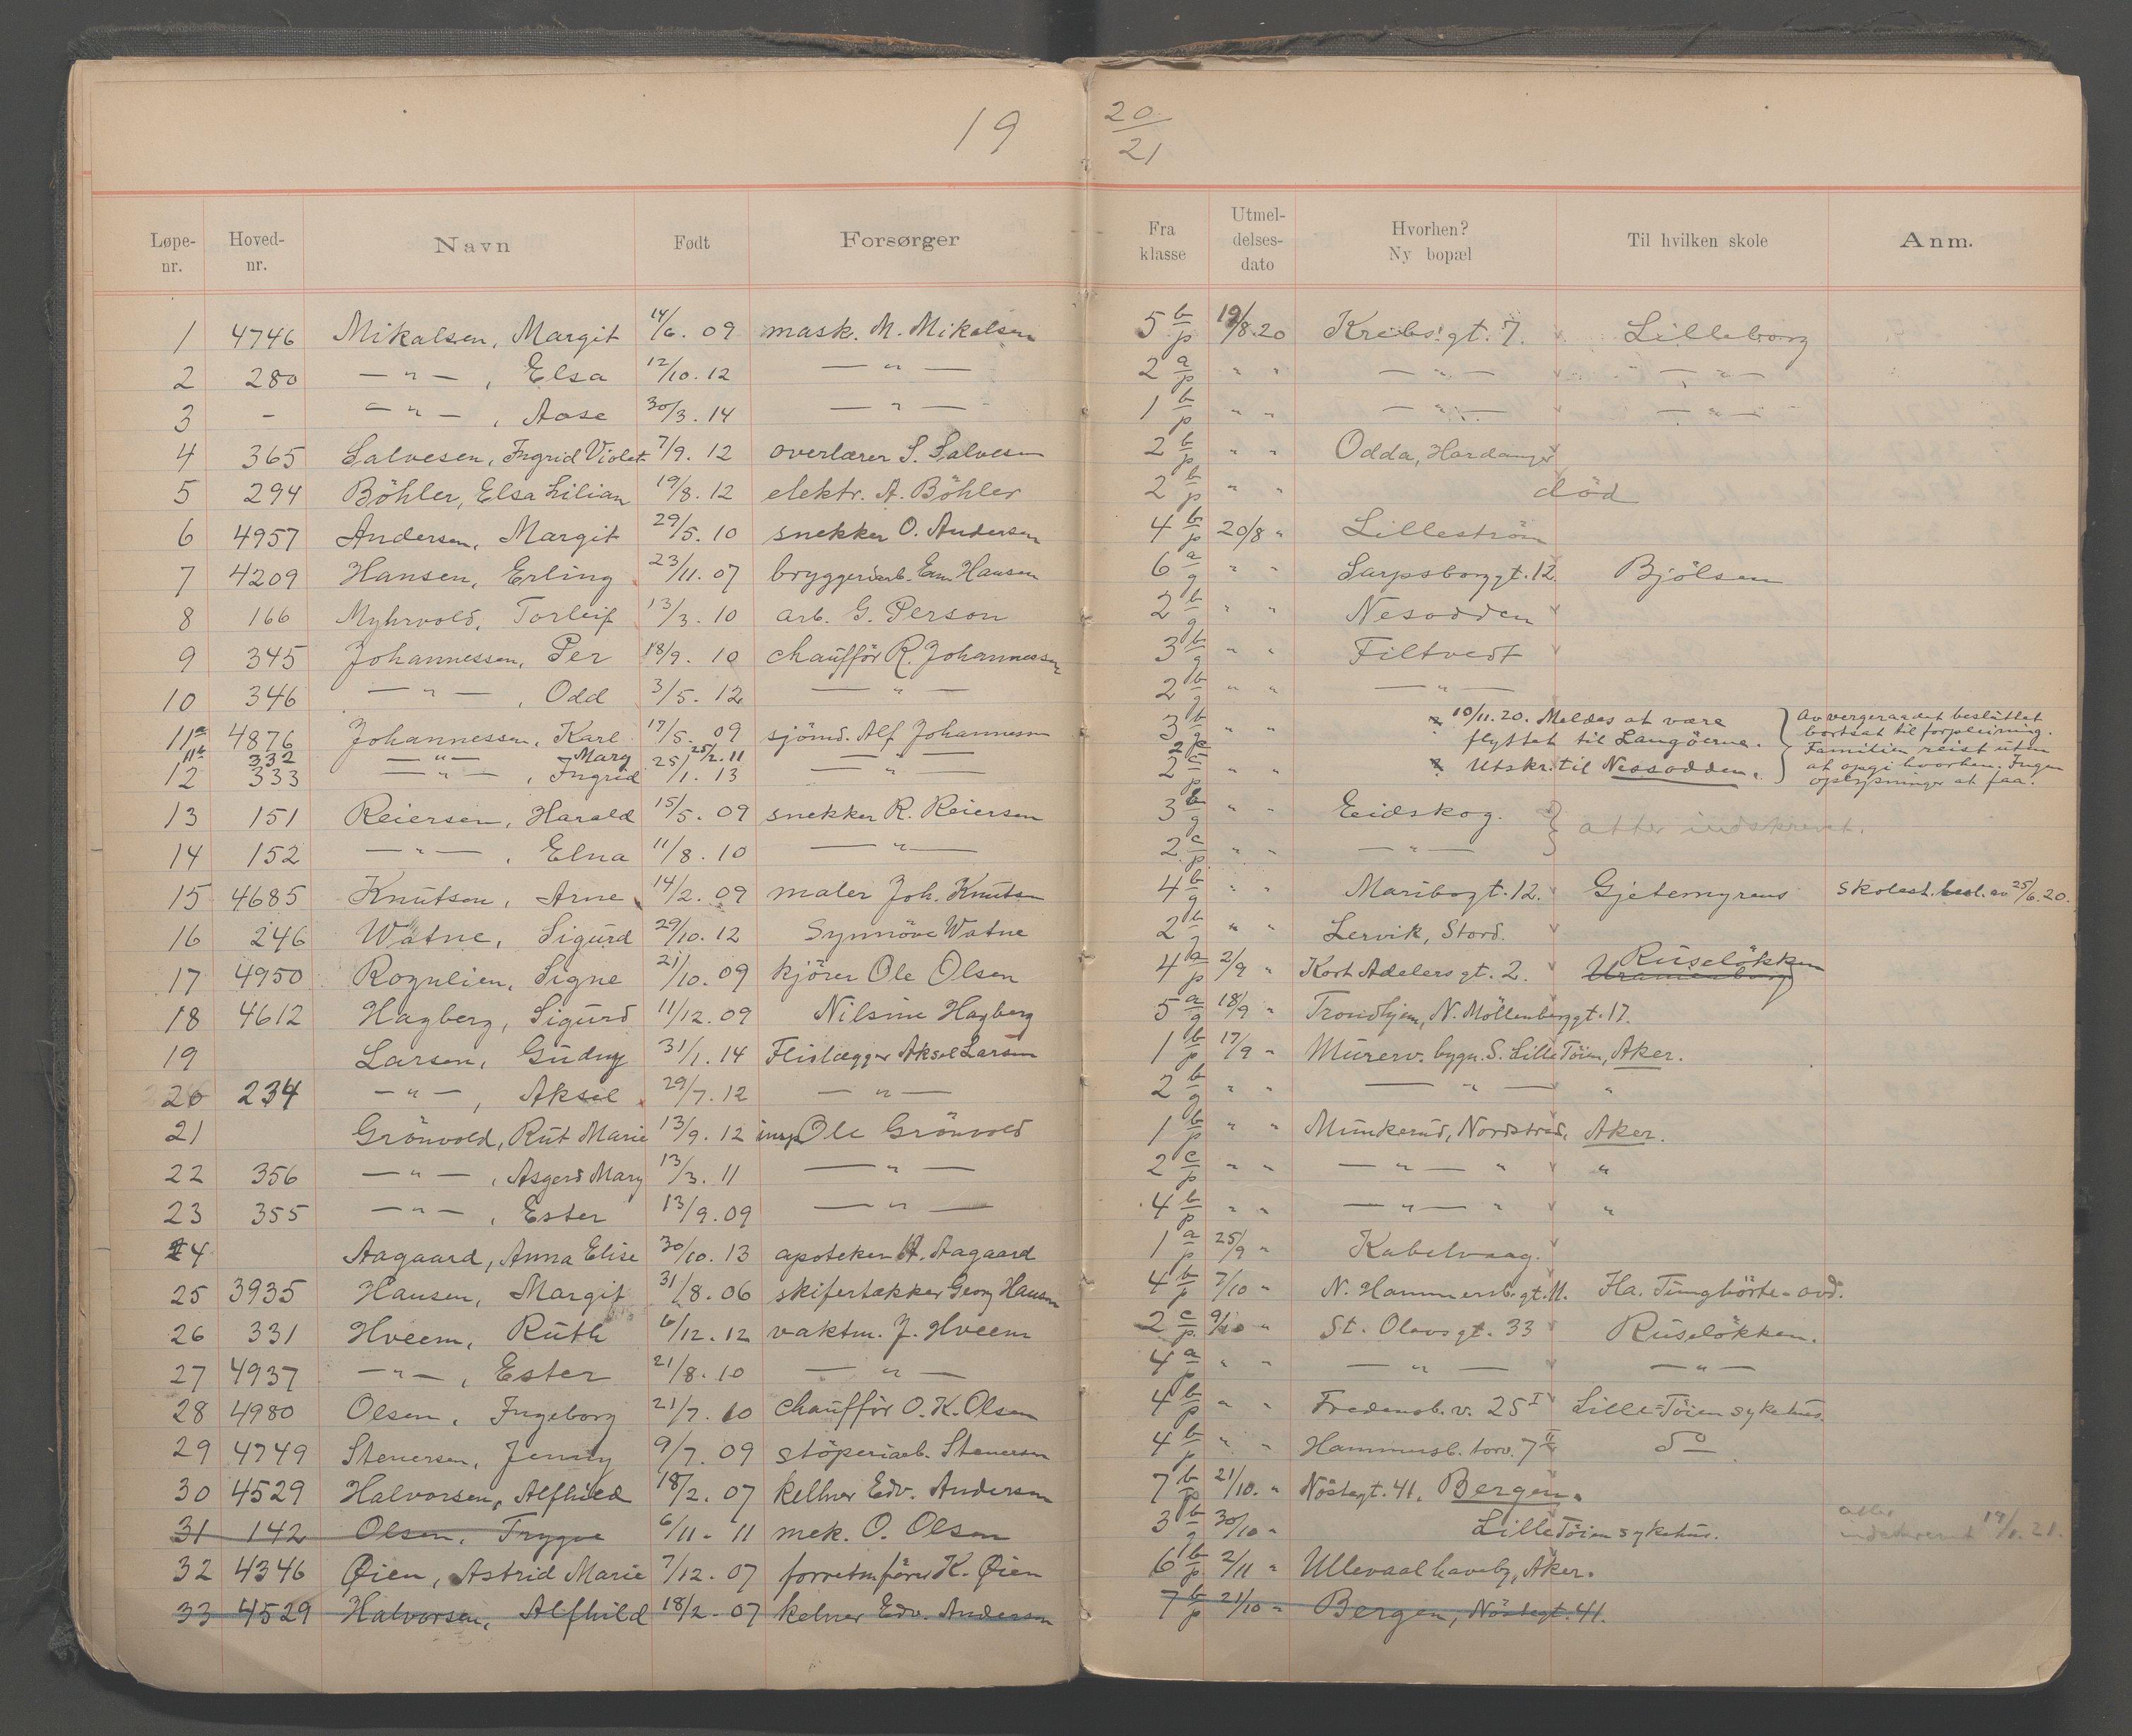 19 20/21
Løpe-nr. Hoved-nr. Navn Født Forsørger Fra klasse Utmel-delses-dato Hvorhen? Ny bopæl Til hvilken skole Anm.
1 4746 Mikalsen, Margit 14/6. 09 mask. M. Mikalsen 5 b/p 19/8.20 Krebs' gt. 7. Lilleborg
2 280 — " — , Elsa 12/10. 12 — " — 2 a/p " " — " — — " —
3 - — " — , Aase 30/3. 14 — " — 1 b/p " " — " — — " —
4 365 Salvesen, Ingrid Violet 7/9. 12 overlærer S. Salvesen 2 b/p " " Odda, Hardanger
5 294 Böhler, Elsa Lilian 19/8. 12 elektr. A. Böhler 2 b/p " " död
6 4957 Andersen, Margit 29/5. 10 snekker O. Andersen 4 b/p 20/8 " Lilleström
7 4209 Hansen, Erling 23/11. 07 bryggeriarb. Em. Hansen 6 a/g " " Sarpsborggt. 12. Bjölsen
8 166 Myhrvold, Torleif 13/3. 10 arb. G. Person 2 b/g " " Nesodden
9 345 Johannessen, Per 18/9. 10 chaufför R. Johannessen 3 b/g " " Filtvedt
10 346 — " — , Odd 3/5. 12 — " — 2 b/g " " — " —
11a 4876 Johannessen, Karl 17/5. 09 sjömd. Alf Johannessen 3 b/g " " 10/11. 20. Meldes at være flyttet til Langöerne. } Av vergeraadet besluttet bortsat til forpleining.
11b 332 — " — Mary 25/2. 11 — 2 c
12 333 — " — , Ingrid 25/1. 13 — " — 2 c/p " " Utskr. til Nessodden. } Familien reist uten at opgi hvorhen. Ingen oplysninger at faa.
13 151 Reiersen, Harald 15/5. 09 snekker R. Reiersen 3 b/g " " Eidskog. } atter indskrevet.
14 152 — " — , Elna 11/8. 10 — " — 2 c/p " " — " —
15 4685 Knutsen, Arne 14/2. 09 maler Joh. Knutsen 4 b/g " " Maribogt. 12. Gjetemyrens Skolest. besl. av 25/6. 20.
16 246 Watne, Sigurd 29/10. 12 Synnöve Watne 2 b/g " " Lervik, Stord.
17 4950 Rognlien, Signe 21/10. 09 kjörer Ole Olsen 4 a/p 2/9 " Kort Adelers gt. 2. Uranienborg Ruselökken
18 4612 Hagberg, Sigurd 11/12. 09 Nilsine Hagberg 5 a/g 18/9 " Trondhjem, N. Möllenberggt. 17.
19 Larsen, Gudny 31/1. 14 Flislægger Aksel Larsen 1 b/p 17/9 " Murerv. bygn. S. Lille Töien, Aker.
20 234 — " — , Aksel 29/7. 12 — " — 2 b/g " " — " — "
21 Grönvold, Rut Marie 13/9. 12 insp Ole Grönvold 1 b/p " " Munkerud, Nordstrd, Aker.
22 356 — " — , Asgerd Mary 13/3. 11 — " — 2 c/p " " — " — " "
23 355 — " — , Ester 13/9. 09 — " — 4 b/p " " — " — " "
24 Aagaard, Anna Elise 30/10. 13 apoteker H. Aagaard 1 a/p 25/9 " Kabelvaag.
25 3935 Hansen, Margit 31/8. 06 skifertækker Georg Hansen 4 b/p 7/10 " N. Hammersb. gt. 11. Ha. Tunghörte-avd.
26 331 Hveem, Ruth 6/12. 12 vaktm. J. Hveem 2 c/p 9/10 " St. Olavs gt. 33 Ruselökken.
27 4937 — " — , Ester 21/8. 10 — " — 4 a/p " " — " — — " —
28 4980 Olsen, Ingeborg 21/7. 10 chaufför O. K. Olsen 4 b/p " " Fredensb. v. 25 I Lille-Töien sykehus.
29 4749 Stenersen, Jenny 9/7. 09 stöperiarb. Stenersen 4 b/p " " Hammersb. torv. 7 II do
30 4529 Halvorsen, Alfhild 18/2. 07 kellner Edv. Andersen 7 b/p 21/10. " Nöstegt. 41, Bergen.
31 142 Olsen, Trygve 6/11. 11 mek. O. Olsen 3 b/g 30/10 " Lille Töien sykehus. atter indskrevet 17/1. 21.
32 4346 Øien, Astrid Marie 7/12. 07 forretn.förer K. Øien 6 b/p 2/11 " Ullevaal haveby, Aker.
33 4529 Halvorsen, Alfhild 18/2. 07 kelner Edv. Andersen 7 b/p 21/10 " Bergen, Nöstegt. 41.